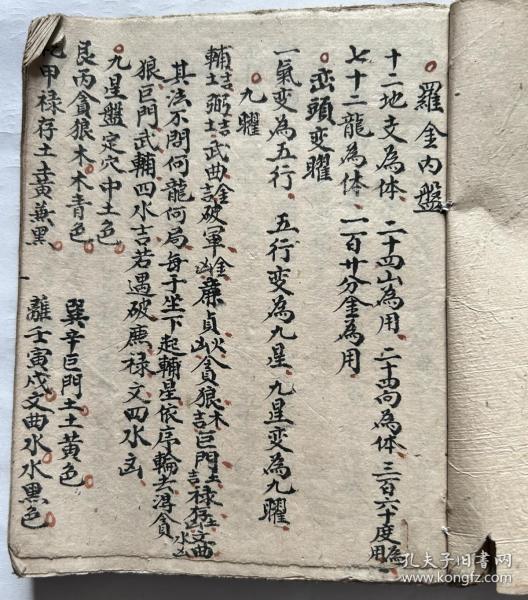 羅金内盤
十二地支為体 二十四山為用 二十四向為体 三百六十度為用
七十二龍為体 一百廿分金為用
巒頭变曜
一氣变為五行 五行变為九星 九星变為九曜
九曜
輔土吉弼土吉武曲金吉破軍金凶廉貞火凶貪狼木吉巨門土吉禄存土凶文曲水凶
其法不問何龍何局每于坐下起輔星依序輪去得貪
狼巨門武輔四水吉若遇破廉禄文四水凶
九星盤定穴中土色
艮丙貪狼木木青色 巽辛巨門土土黃色
甲禄存土土黃兼黑 離壬寅戍文曲水水黑色
孔夫子旧书网
www.kongfz.com